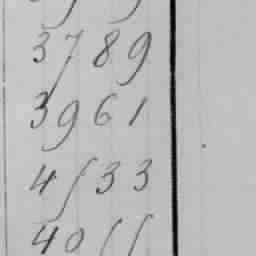 3789
3961
4533
4055